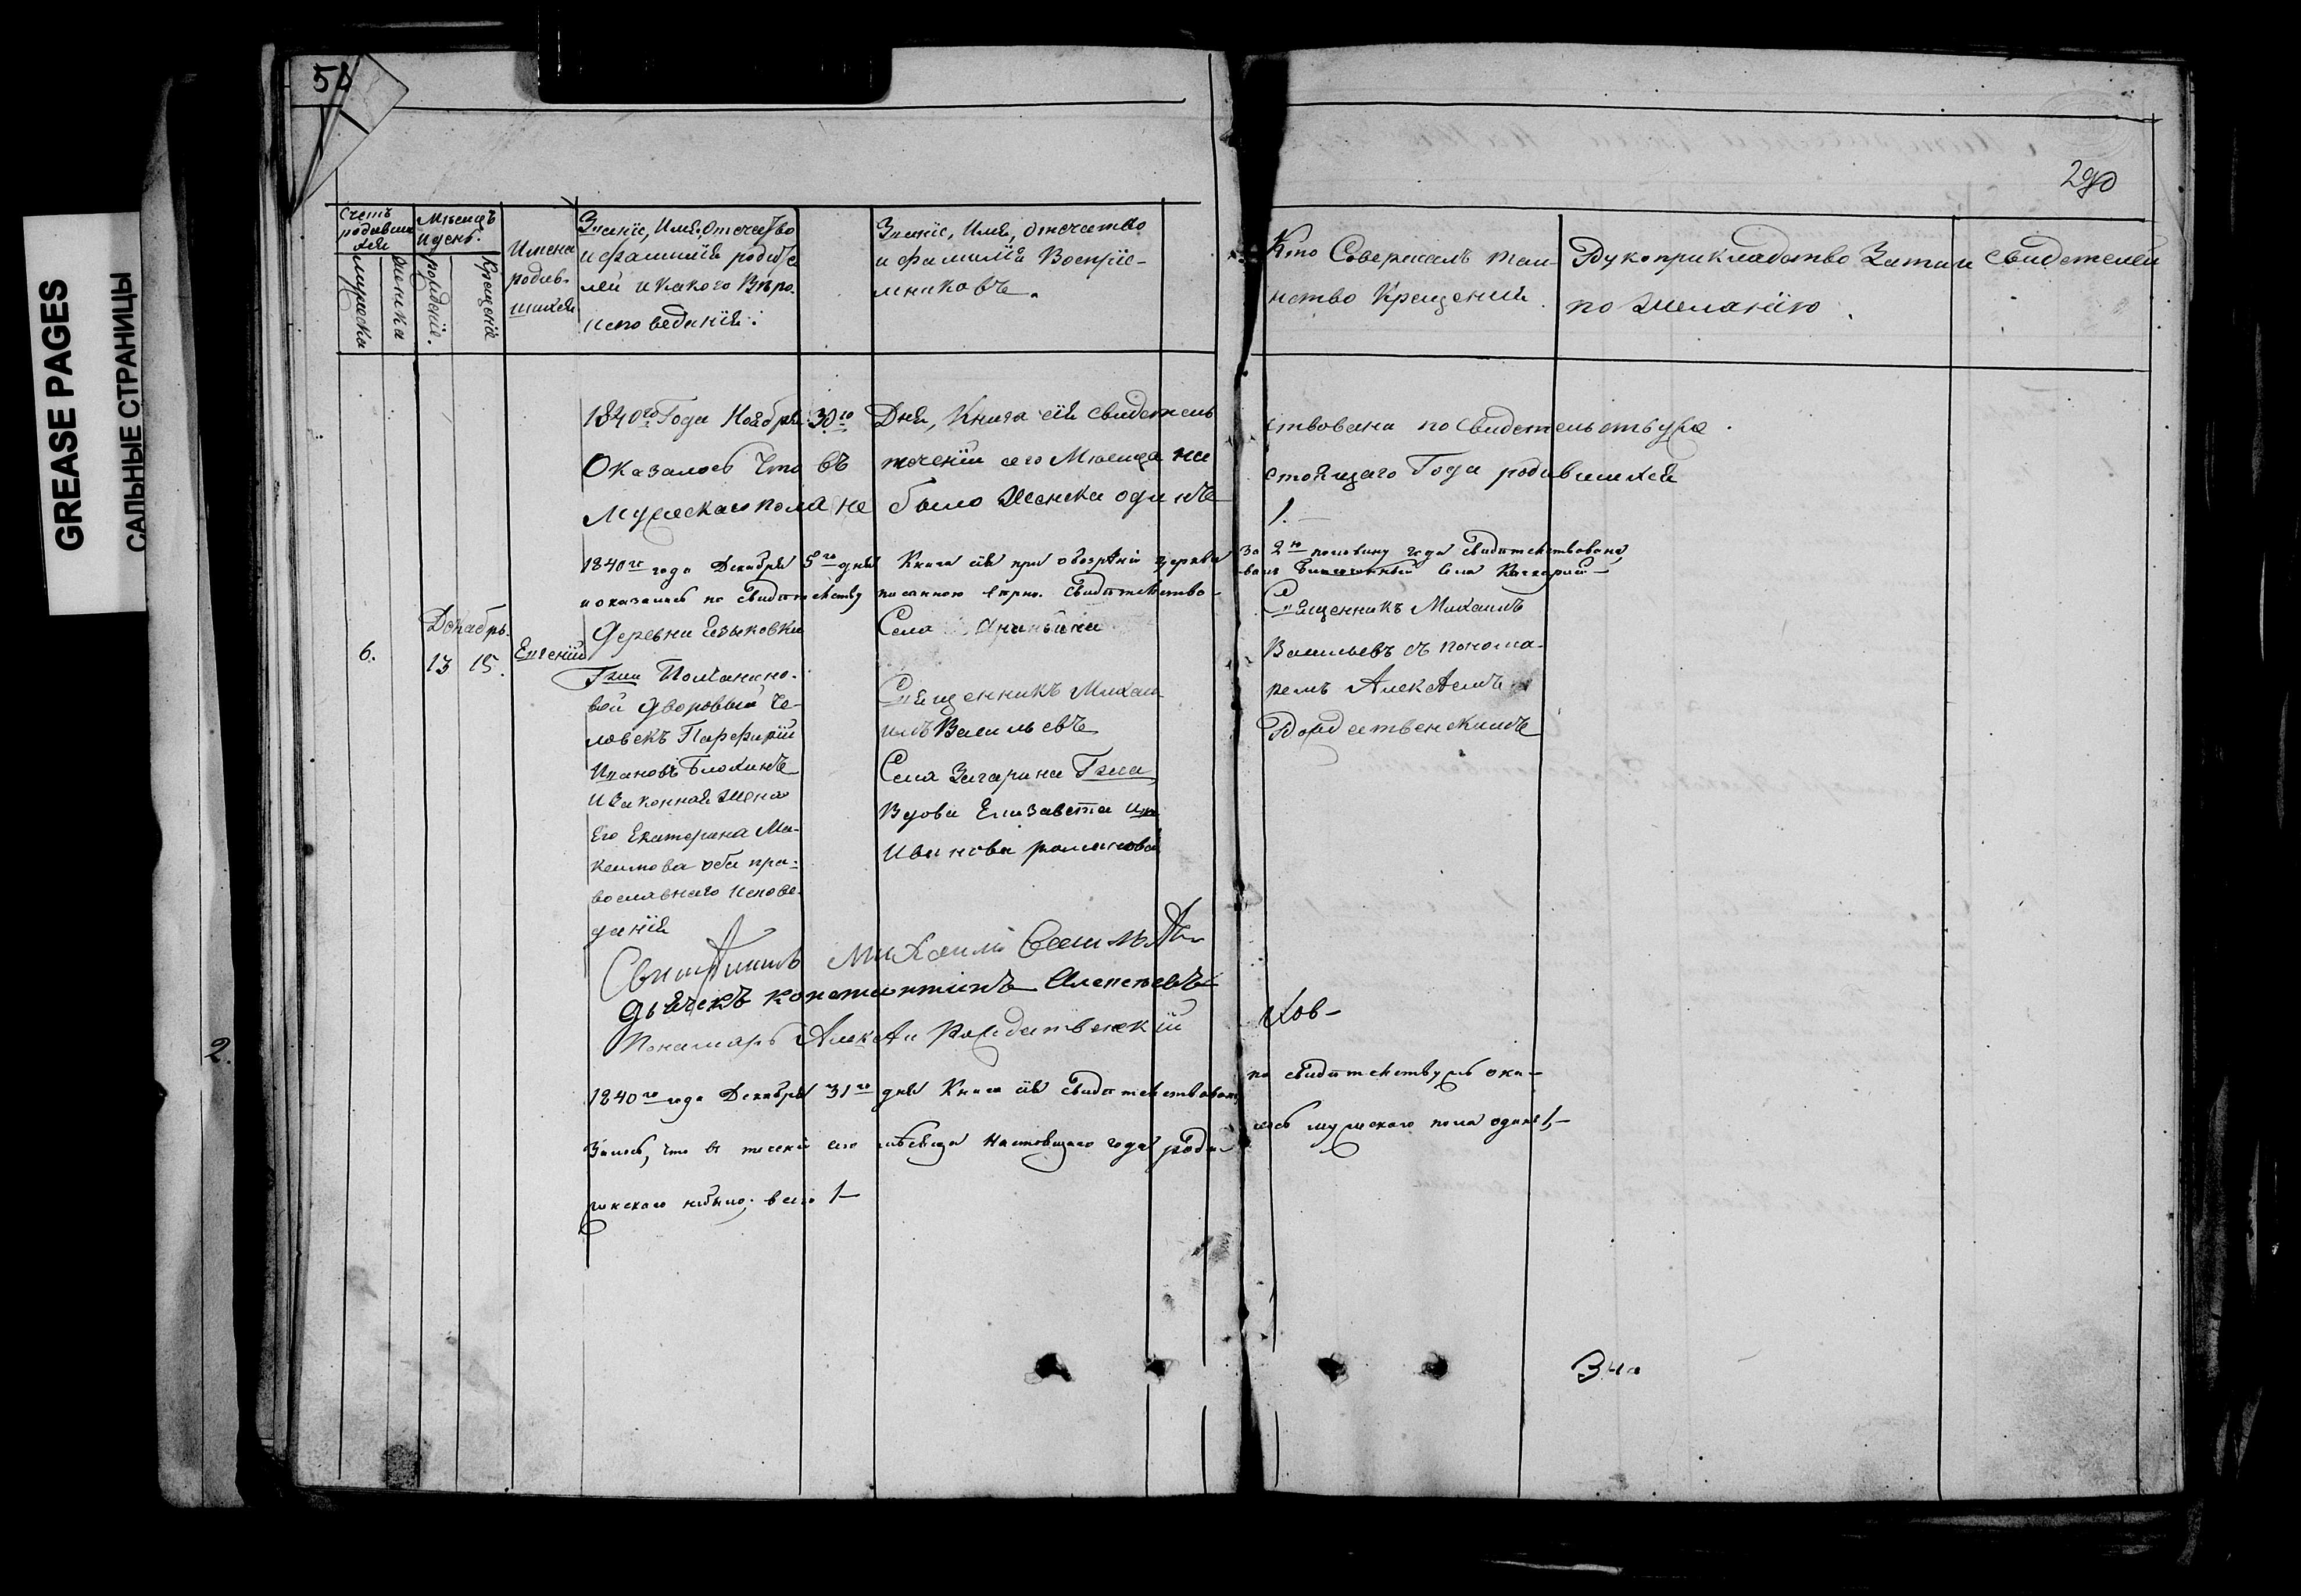 GREASE PAGES
САЛЬНЫЕ СТРАНИЦЫ
2.
290
Счетъ родивших ся
мужеска
женска
Мѣсяцъ и день.
рожденіе.
Крещеніе
Имена родив-
шихся
Званіе, Имя, Отечество
и фамилія родите
лей и какого Вѣро-
исповеданія.
Званіе, Имя, отечество
и фамилія Воспріе-
мниковъ.
Кто Совершалъ таи-
нство Крещения.
Рукоприкладство Записи свидетелей
по желанію.
1840го Года Ноября 30го Дня, Книга сія свидетель
ствована по свидетельству же
Оказалось что въ течении сего Месяца на
стоящаго Года родившихся
Мужескаго пола не было Женска одинъ
1.
1840го года Декабря 5го дня Книга сія при обозрѣніи церкви за 2ю половину года свидетельствована,
и оказалась по свидетельству писанною верно. Свидетельство-
валъ Благочинный Села
Декабрь.
6.
13 15.
Евгений
Деревни Языковки
Гжи
вой дворовый че-
ловекъ Парфирій
Ивановъ Блохинъ
и Законная жена
Его Екатерина Ма-
ксимова оба пра-
вославнаго Испове-
данія
Села Ананьина
Священникъ Михаи-
илъ Васильевъ
Села Загарина Гжа
Вдова Елизавета
Иванова романова
Священникъ Михаилъ
Васильевъ съ понома-
ремъ Алексѣемъ
Рождественскимъ
Священникъ Михаилъ Васильѣвъ
дьячекъ константинъ Алексѣевъ
Пономарь Алексѣй Рождественскій
1840го года Декабря 31го дня Книга сія Свидетельствована,
по свидетельству же ока-
залось, что въ течении сего мѣсяца настоящаго года роди-
лось мужескаго пола одинъ 1,-
женскаго небыло; всего 1-